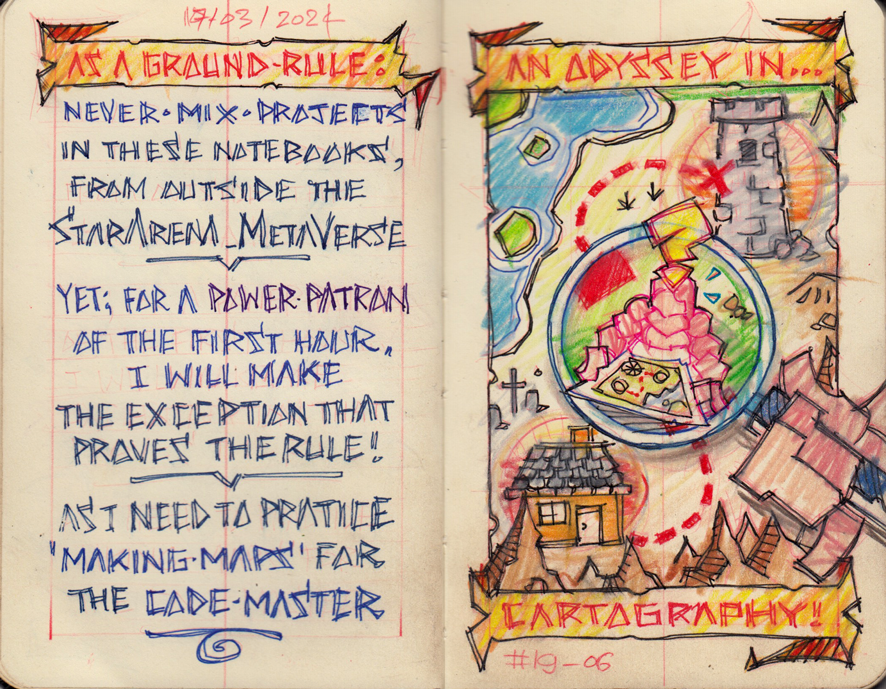 17/03/2024
AS A GROUND-RULE:
NEVER·MIX·PROJEETS
IN THESE NOTEBOOKS,
FROM OUTSIDE THE
STARARENA_METAVERSE
YET; FOR A POWER·PATRON
OF THE FIRST HOUR,
I WILL MAKE
THE EXCEPTION THAT
PROVES THE RULE!
AS I NEED TO PRATICE
'MAKING·MAPS' FOR
THE CODE·MASTER
AN ODYSSEY IN...
CARTOGRAPHY!
#19-06